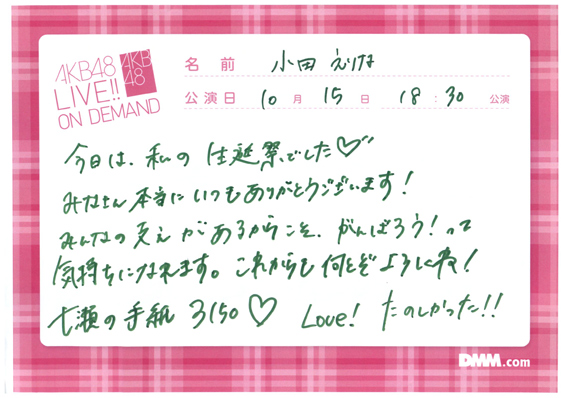 AKB48
LIVE!!
ON DEMAND
AKB
48
名 前 小田 えりな
公演日 10 月 15 日 18 : 30 公演
今日は、私の 生誕祭でした♡
みなさん 本当に いつも ありがとうございます!
みんなの支え があるからこそ、がんばろう!って
気持ちになれます。これからも 何とぞ よろしくね!
七瀬の手紙 3150♡ Love! たのしかった!!
DMM.com